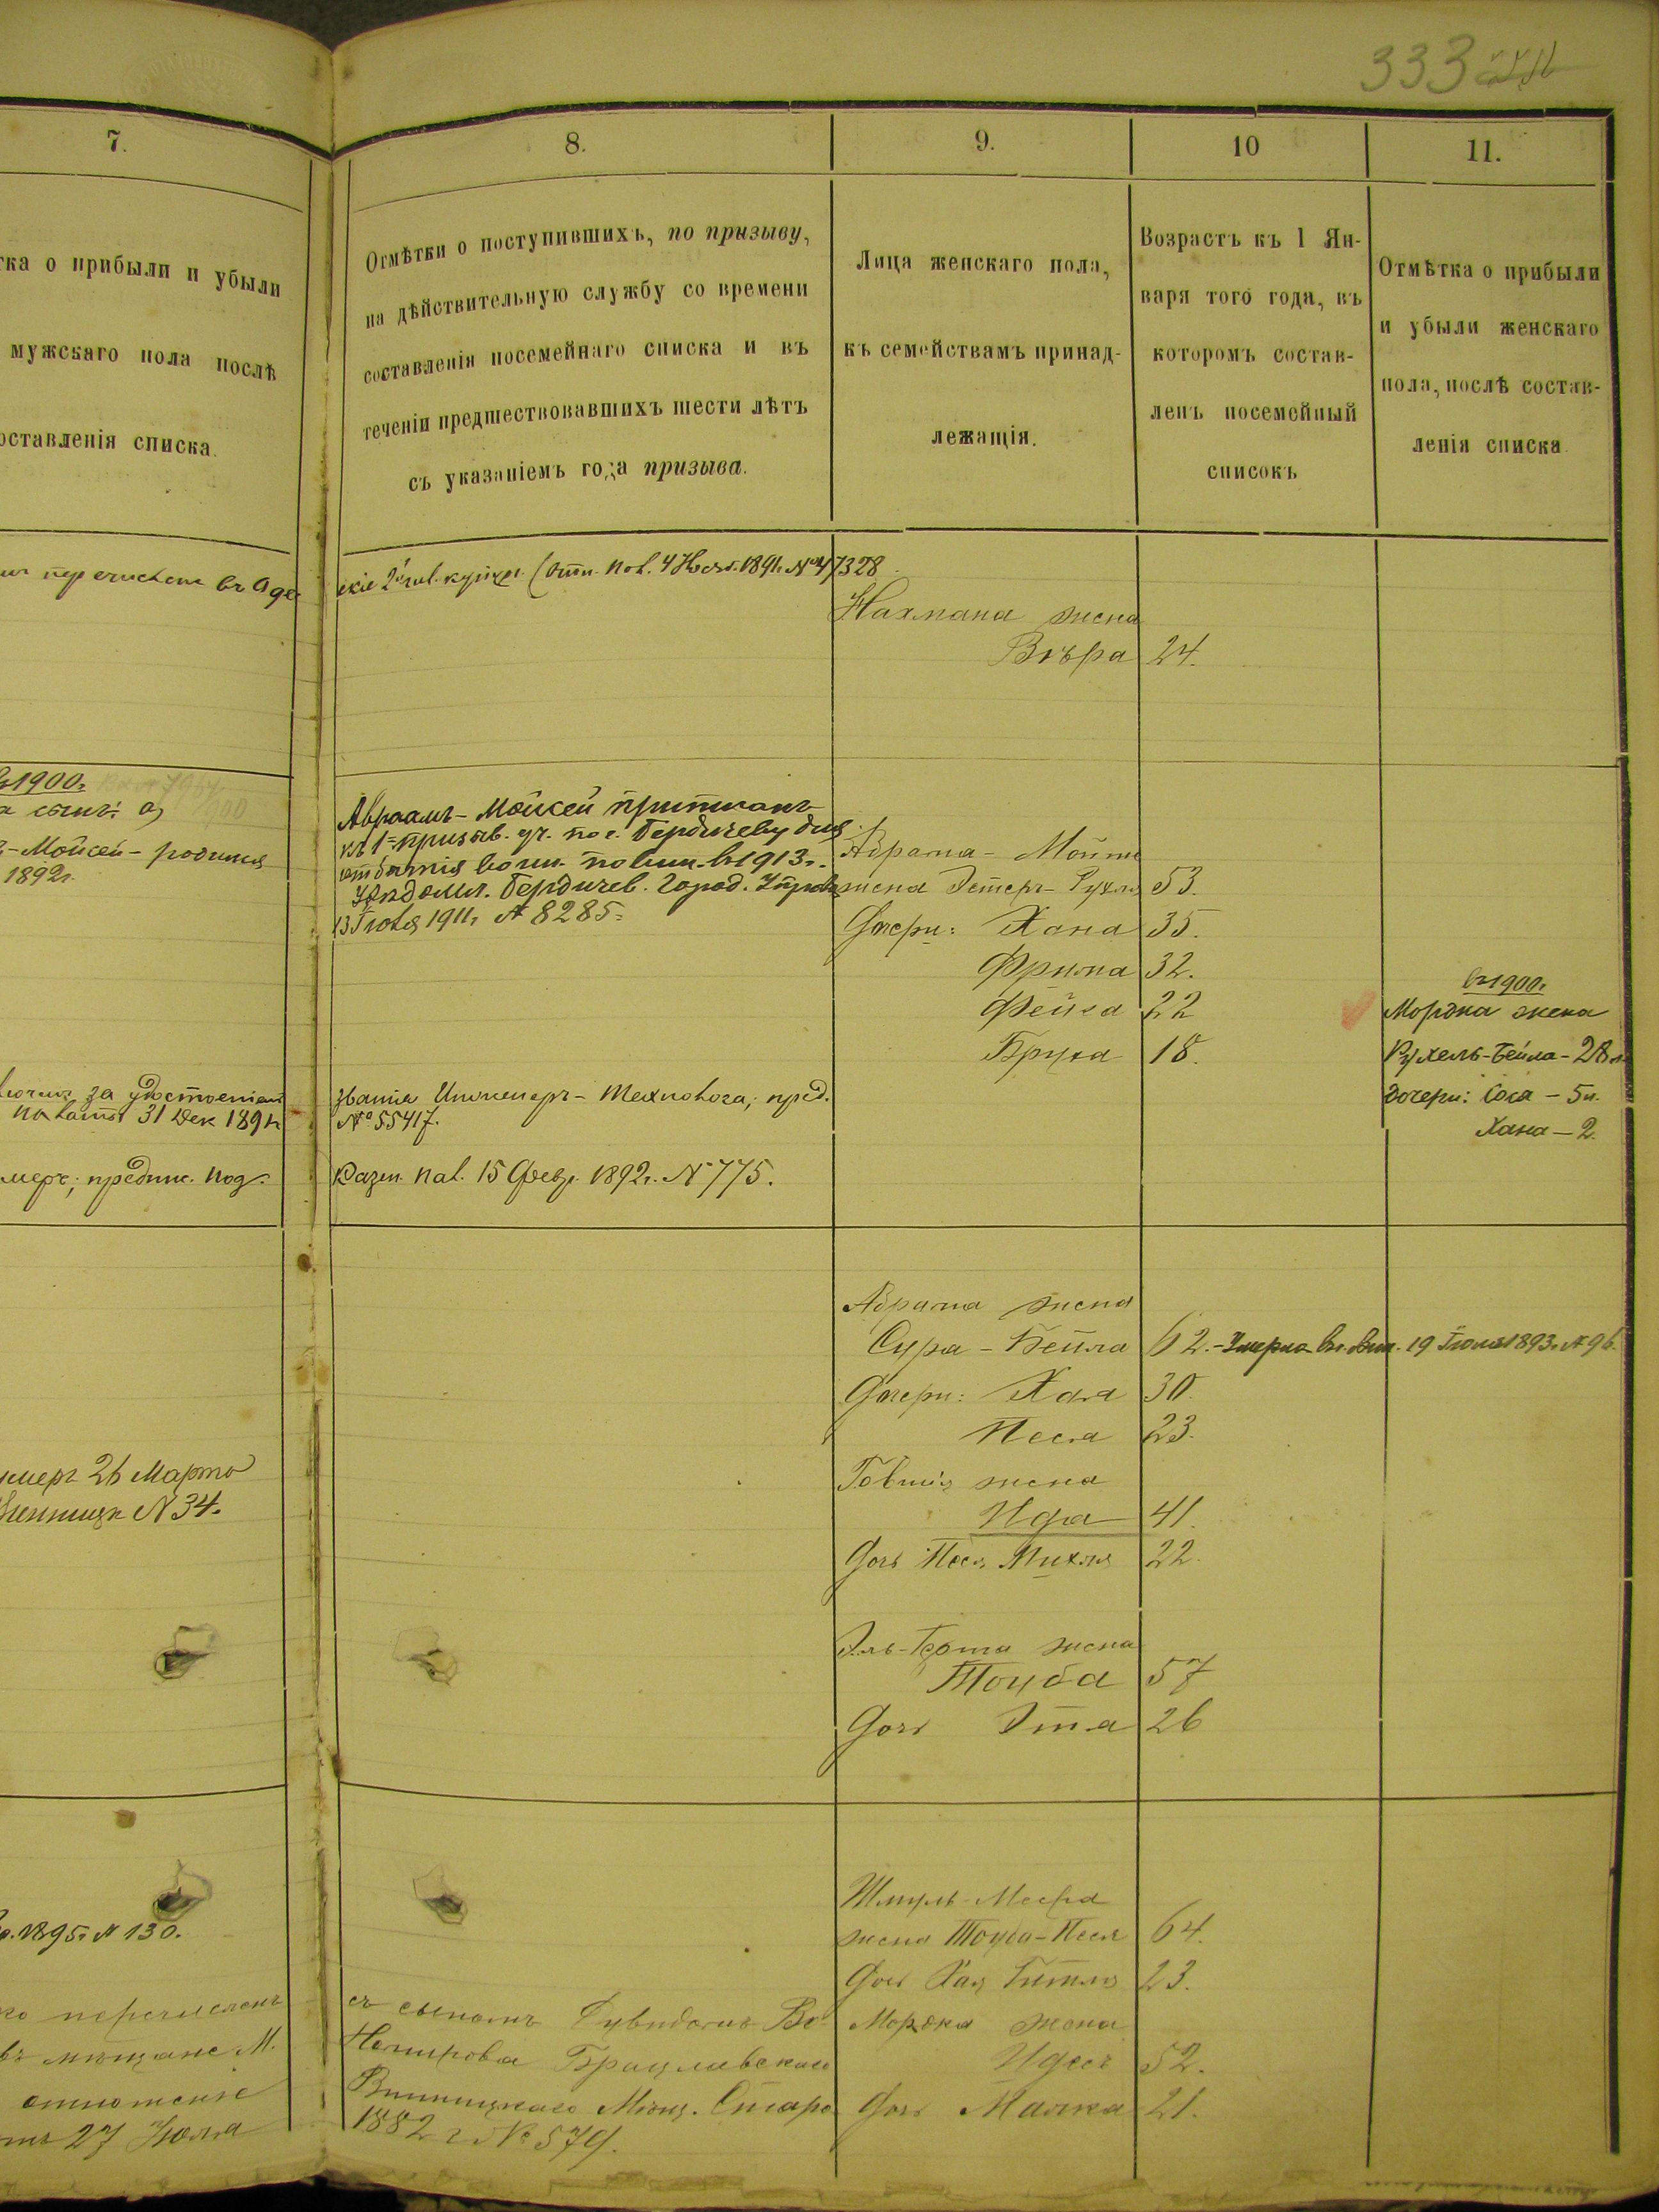 333
7.
8.
9.
10
11.
тка о прибыли и убыли
мужскаго пола послѣ
оставленія списка.
Отмѣтки о поступившихъ, по призыву,
на дѣйствительную службу со времени
составленія посемейнаго списка и въ
теченіи предшествовавшихъ шести лѣтъ
съ указаніемъ года призыва.
Лица женскаго пола,
къ семействамъ принад-
лежащія.
Возрастъ къ 1 Ян-
варя того года, въ
которомъ состав-
ленъ посемейный
списокъ
Отмѣтка о прибыли
и убыли женскаго
пола, послѣ состав-
ленія списка
перечислен въ Оде
скіе 2 гил. купцы (отн. Пов. 1891. № 47328
Нахмана жена
Вѣра 24.
въ 1900г.
а сынъ: а)
-Мойсей - родился
1892г.
Авраамъ-Мойсей приписанъ
къ 1 призыв. уч. по г. Бердичеву для
отбытія воин. повин. въ 1913г.
Увѣдомл. Бердичев. Город. Управ
13 1911г № 8285.
Абрама-
жена Эстеръ-Рухля 53.
Дочери: Хана 35.
Фрима 32.
Фейга 22
Бруха 18.
въ 1900г.
Мордка жена
Рухель-Бейла - 28 л.
дочери: Сося - 5 л.
Хана - 2.
за удостоеніем
31 Дек 1891г
званія Инженеръ-Технолога, пред.
№ 55417.
мерг; предпис. Под.
Казен. Пал. 15 Февр. 1892г. № 775.
Абрама жена
Сура-Бейла 62. - Умерла въ Вин. 19 Іюля 1893г № 96.
Дочери: Хая 30.
Песя 23.
умеръ 26 Марта
Винницѣ № 34.
Говшія жена
Ида 41.
Дочь Песя Михля 22.
жена
Тоуба 57
Дочь Этя 26
1895г № 130.
Шмуль-Меера
жена Тоуба-Песя 64.
Дочь Хая Гитля 23.
перечисленъ
въ мѣщане М.
отношеніе
27 Іюля
съ сыномъ Дувидомъ Въ
Немирова Брацлавскаго
Винницкаго Мѣщ. Старо
1882 г № 579.
Мордка жена
Идесъ 52.
Дочь Малка 21.